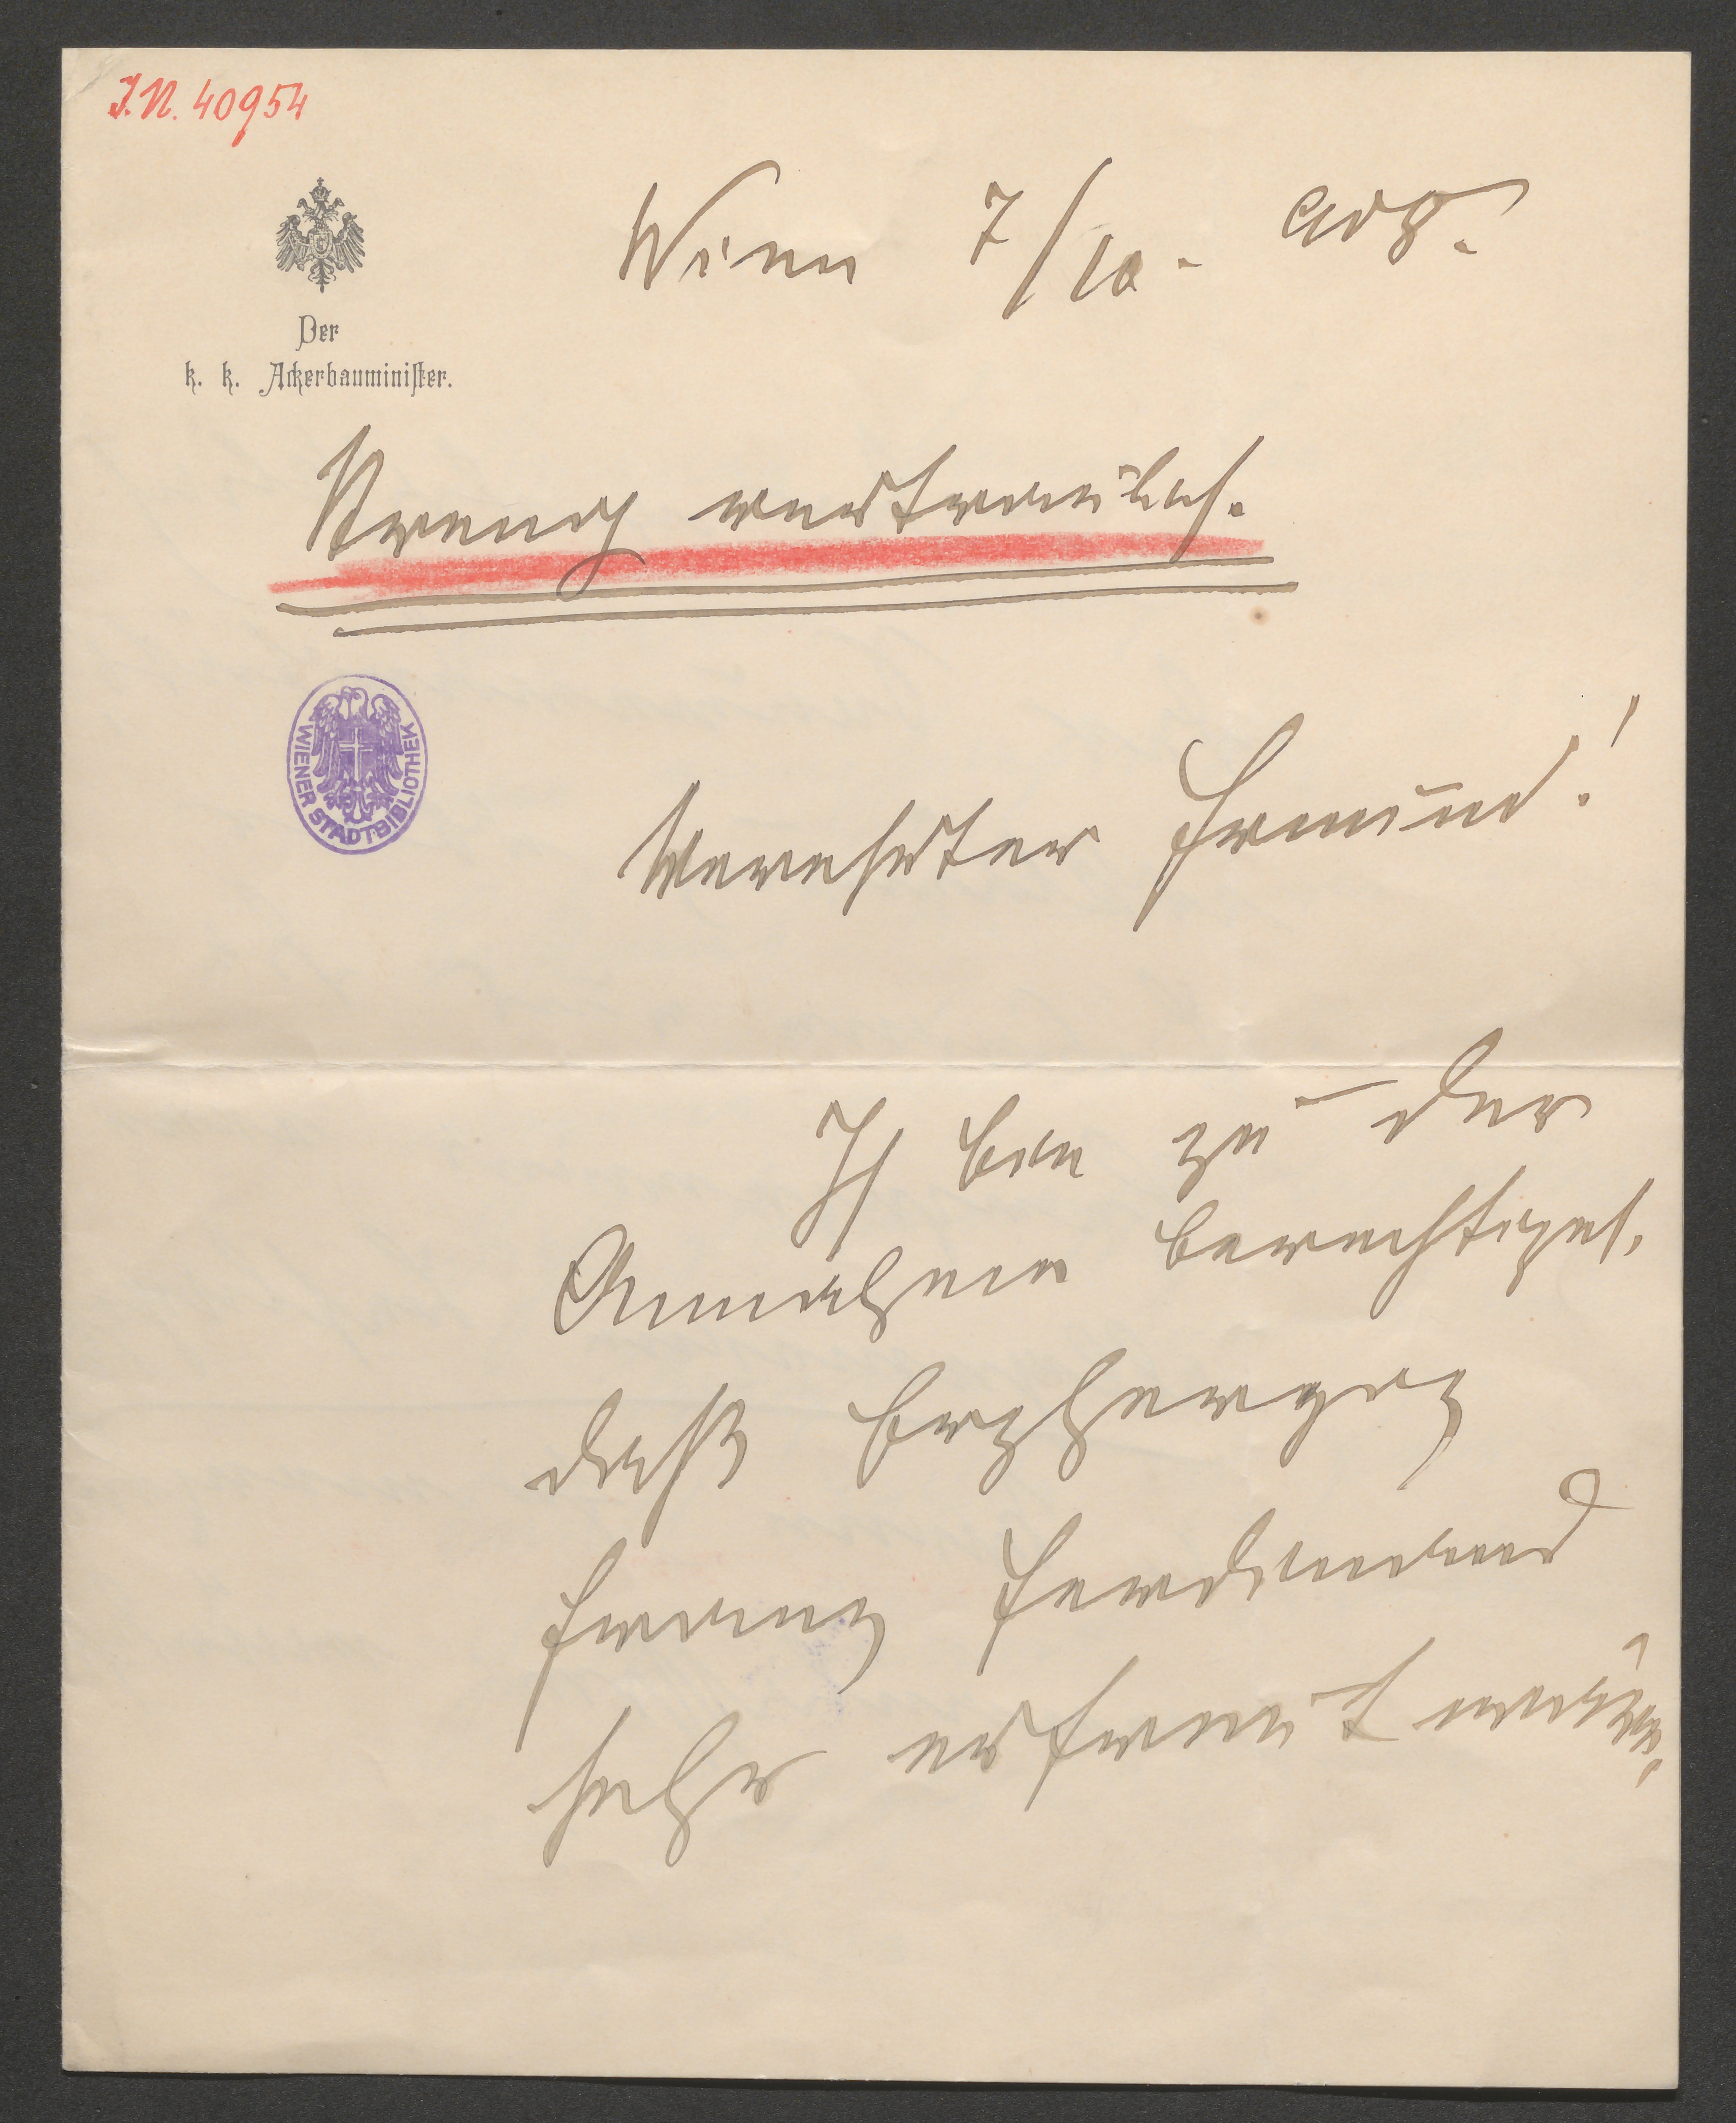 I.N. 40954
Wien 7/10. 908.
Der
k. k. Ackerbauminister.
Streng vertraulich.
WIENER STADTBIBLIOTHEK
Verehrter Freund!
Ich bin zu der
Annahme berechtiget,
daß Erzherzog
Franz Ferdinand
sehr erfreut wäre,